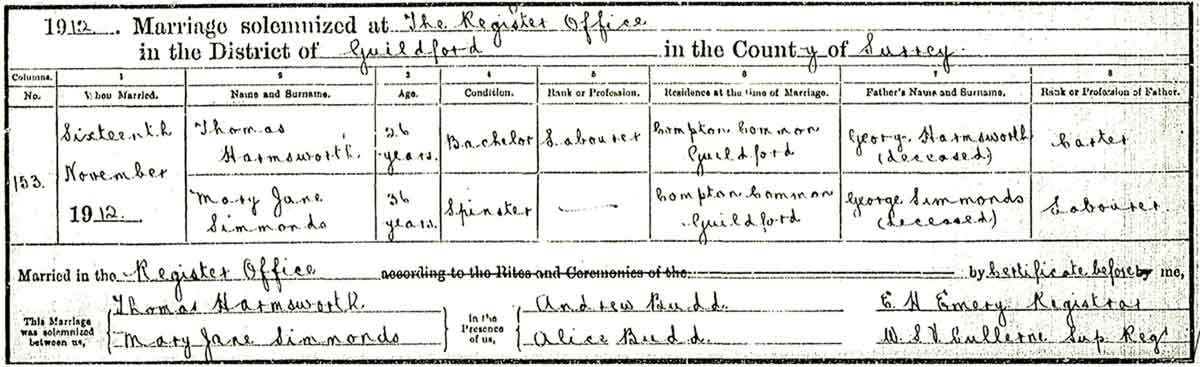 1912. Marriage solemnized at The Register Office
in the District of Guildford in the County of Surrey.
Columns. 1 2 3 4 5 6 7 8
No. When Married. Name and Surname. Age. Condition. Rank or Profession. Residence at the time of Marriage. Father's Name and Surname. Rank or Profession of Father.
153. Sixteenth November 1912. Thomas Harmsworth. 26 years. Bachelor Labourer Compton Common Guildford George Harmsworth (deceased) Carter
Mary Jane Simmonds 36 years. Spinster — Compton Common Guildford George Simmonds (deceased) Labourer
Married in the Register Office according to the Rites and Ceremonies of the by Certificate before by me,
This Marriage was solemnized between us, Thomas Harmsworth. Mary Jane Simmonds In the Presence of us, Andrew Budd. Alice Budd. E H Emery Registrar
W. S. V. Cullerne Sup. Reg